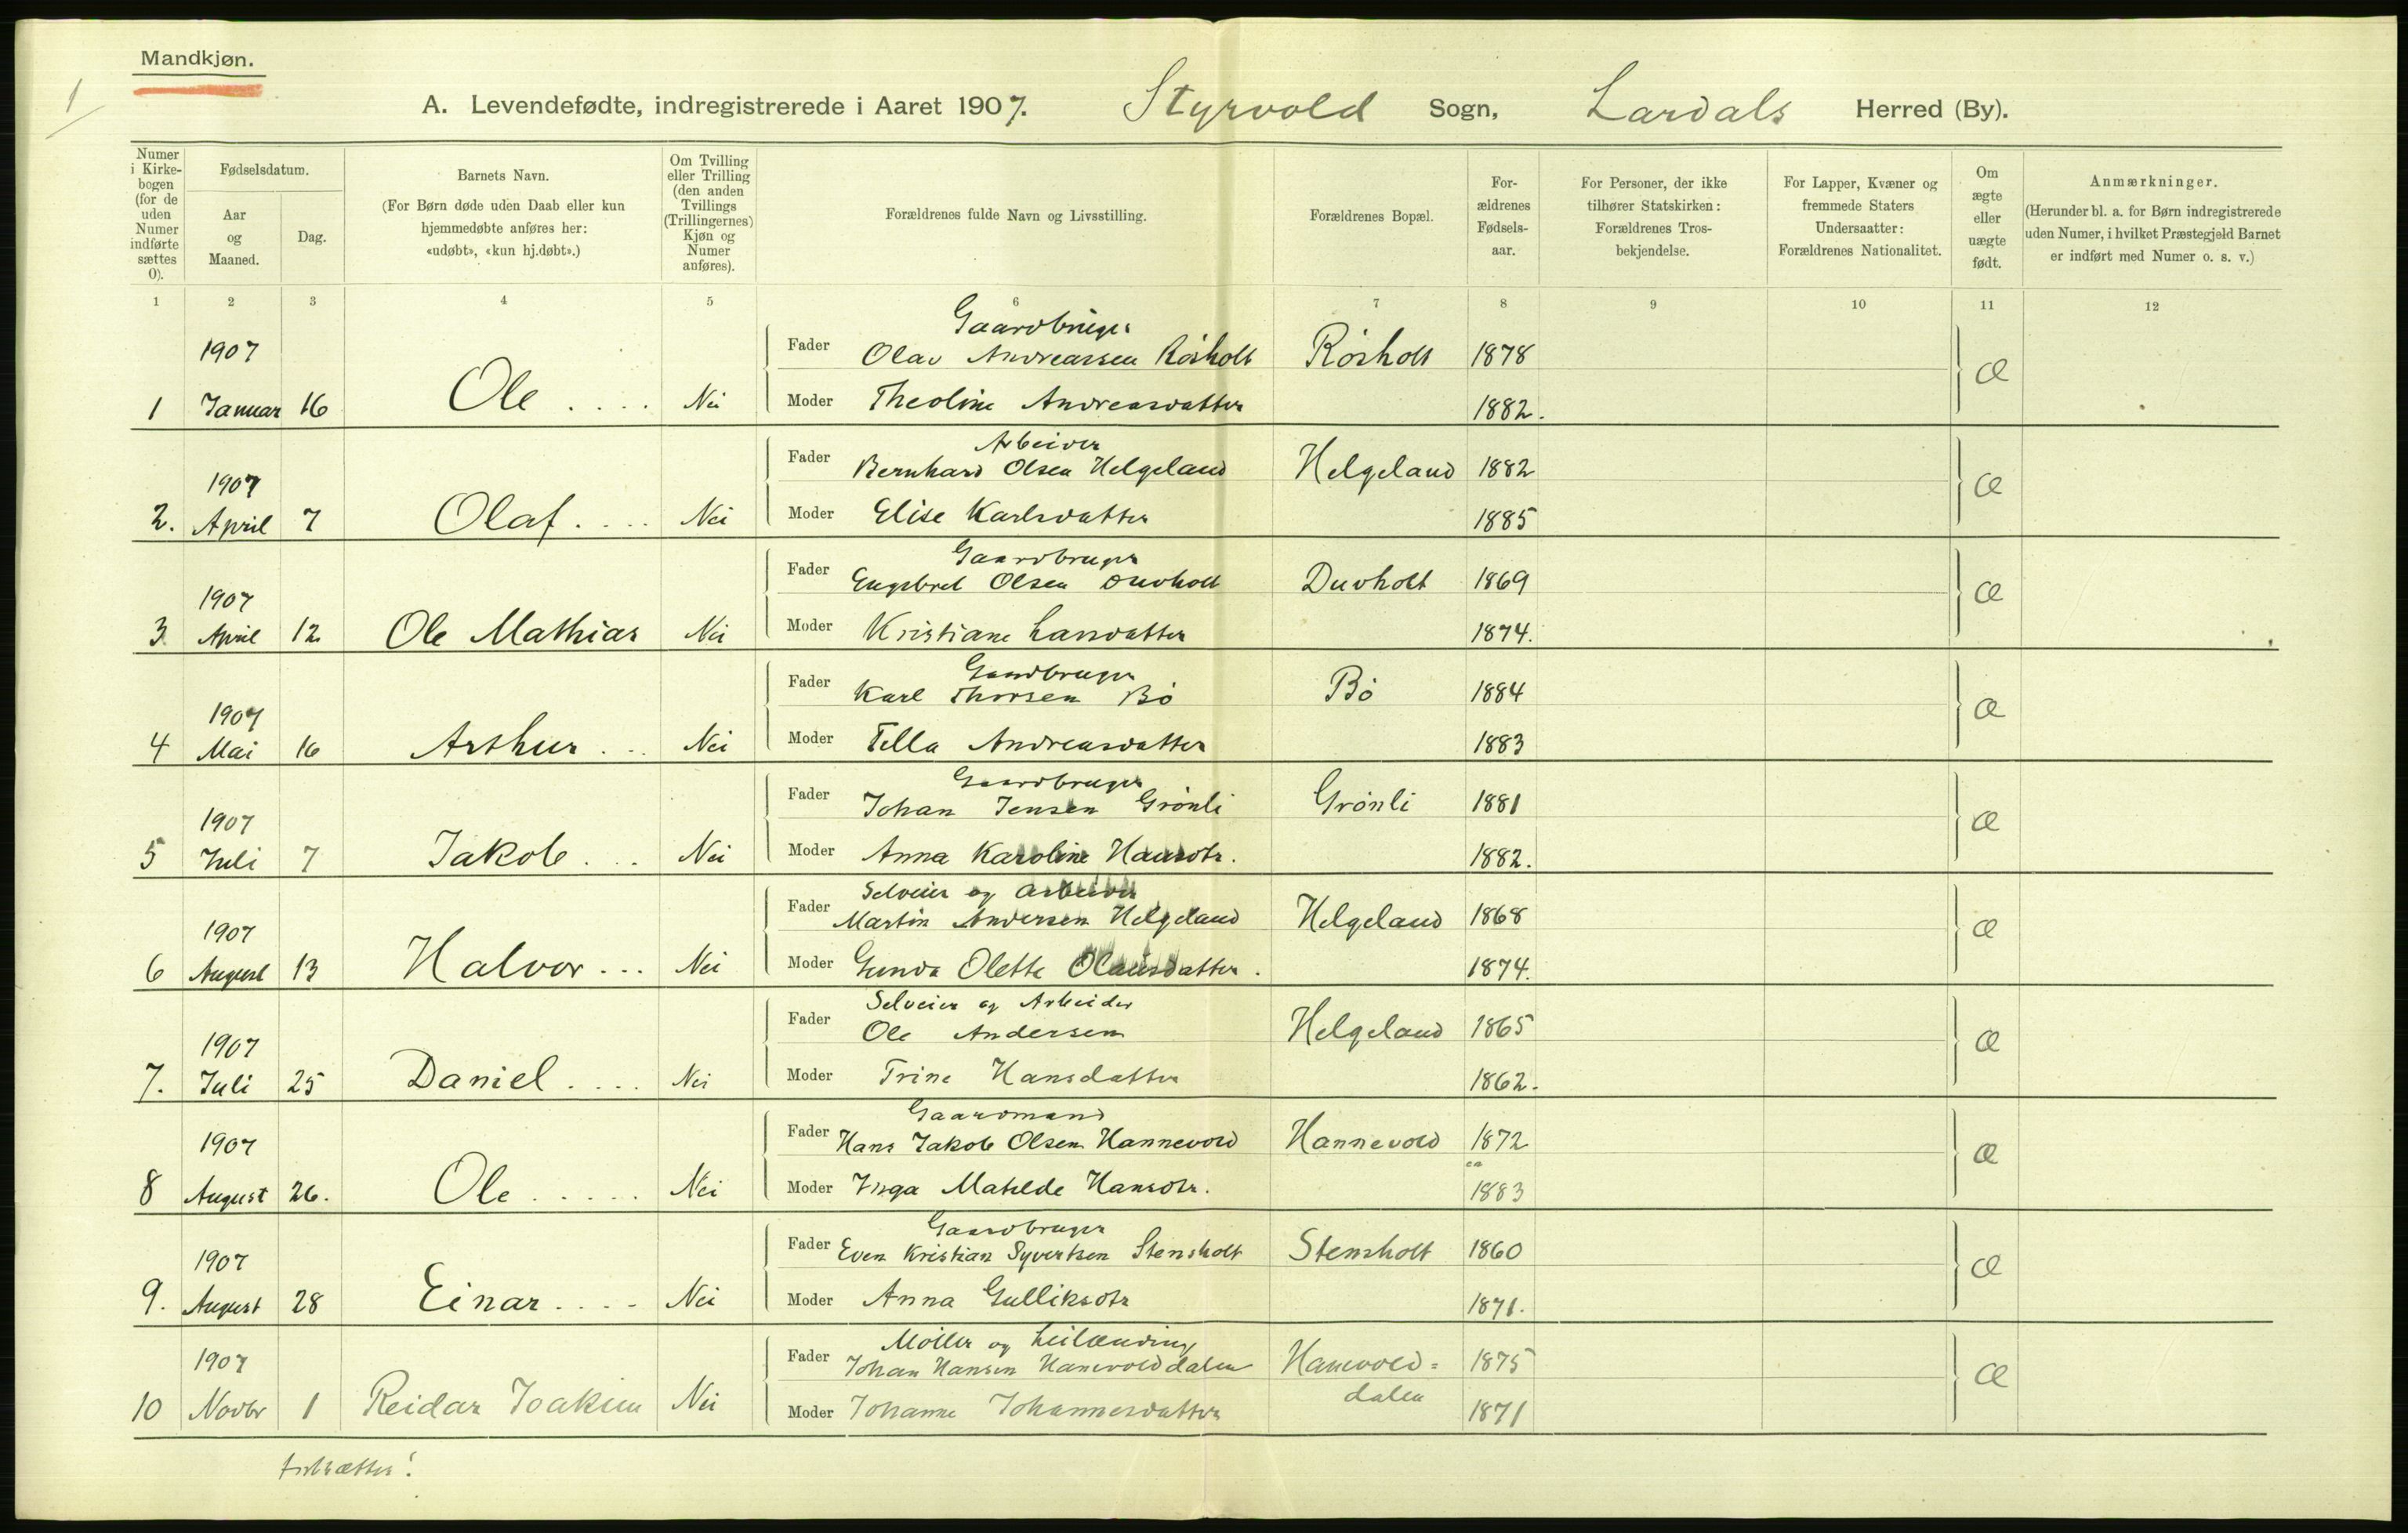 Mandkjøn.
1
A. Levendefødte, indregistrerede i Aaret 1907. Styrvold Sogn, Lardals Herred (By).
Numer i Kirkebogen (for de uden Numer indførte sættes 0).
Fødselsdatum.
Aar og Maaned.
Dag.
Barnets Navn.
(For Børn døde uden Daab eller kun hjemmedøbte anføres her: «udøbt», «kun hj.døbt».)
Om Tvilling eller Trilling (den anden Tvillings (Trillingernes) Kjøn og Numer anføres).
Forældrenes fulde Navn og Livsstilling.
Forældrenes Bopæl.
For-ældrenes Fødsels-aar.
For Personer, der ikke tilhører Statskirken: Forældrenes Tros-bekjendelse.
For Lapper, Kvæner og fremmede Staters Undersaatter: Forældrenes Nationalitet.
Om ægte eller uægte født.
Anmærkninger.
(Herunder bl. a. for Børn indregistrerede uden Numer, i hvilket Præstegjeld Barnet er indført med Numer o. s. v.)
1 2 3 4 5 6 7 8 9 10 11 12
Gaardbruger
1907 Fader Olav Andreassen Rösholt Rösholt 1878 Æ
1 Januar 16 Ole .... Nei Moder Theoline Andreasdatter 1882.
Arbeider
1907 Fader Bernhard Olsen Helgeland Helgeland 1882 Æ
2. April 7 Olaf.... Nei Moder Elise Karlsdatter 1885
Gaardbruger
1907 Fader Engebret Olsen Duvholt Duvholt 1869 Æ
3. April 12 Ole Mathias Nei Moder Kristiane Larsdatter 1874.
Gaardbruger
1907 Fader Karl Thorsen Bö Bö 1884 Æ
4 Mai 16 Arthur ... Nei Moder Tella Andreasdatter 1883
Gaardbruger
1907 Fader Johan Jensen Grönli Grönli 1881 Æ
5 Juli 7 Jakob ... Nei Moder Anna Karoline Hansdtr. 1882.
Selveier og Arbeider
1907 Fader Martin Andersen Helgeland Helgeland 1868 Æ
6 August 13 Halvor ... Nei Moder Gunda Olette Olausdatter. 1874.
Selveier og Arbeider
1907 Fader Ole Andersen Helgeland 1865 Æ
7. Juli 25 Daniel .... Nei Moder Trine Hansdatter 1862.
Gaardmand
1907 Fader Hans Jakob Olsen Hannevold Hannevold 1872 Æ
8 August 26. Ole ..... Nei Moder Inga Matilde Hansdtr. ca 1883
Gaardbruger
1907 Fader Even Kristian Syvertsen Stensholt Stensholt 1860 Æ
9. August 28 Einar .... Nei Moder Anna Gulliksdtr 1871.
Möller og Leilænding
1907 Fader Johan Hansen Hanevolddalen Hanevold= 1875 Æ
dalen
10 Novbr 1 Reidar Joakim Nei Moder Johanne Johannesdatter 1871